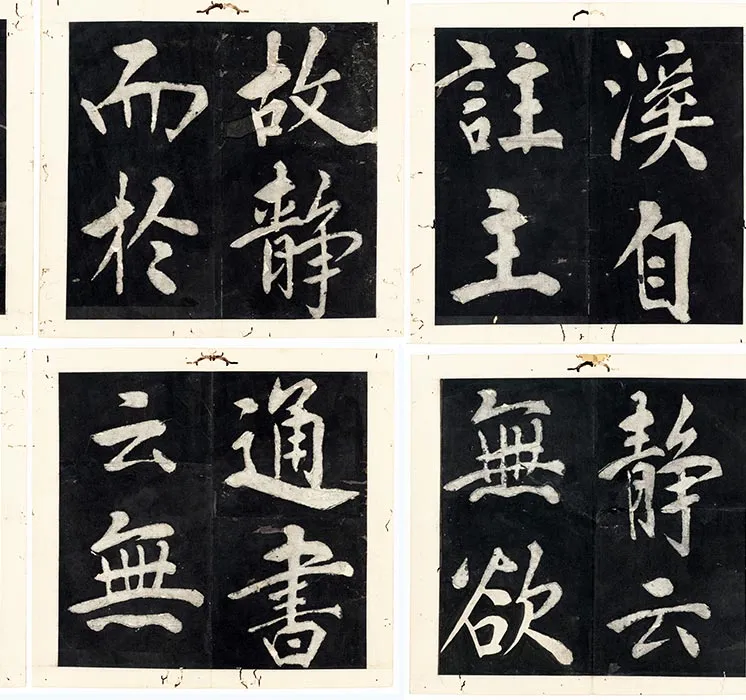 溪自
註主
静云
無欲
故静
而於
通書
云無